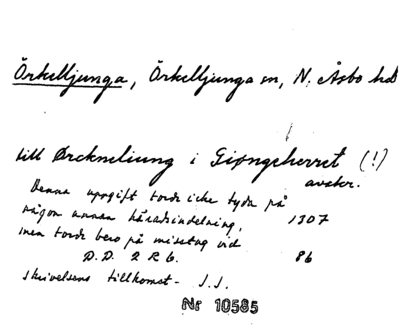 Örkelljunga, Örkelljunga sn, N. Åsbo hd
till Ørckneliung i Giøngeherret (!)
avskr.
Denna uppgift torde icke tyda på
någon annan häradsindelning, 1307
men torde bero på misstag vid
D.D. 2 R 6. 86
skrivelsens tillkomst - J.J.
Nr 10585